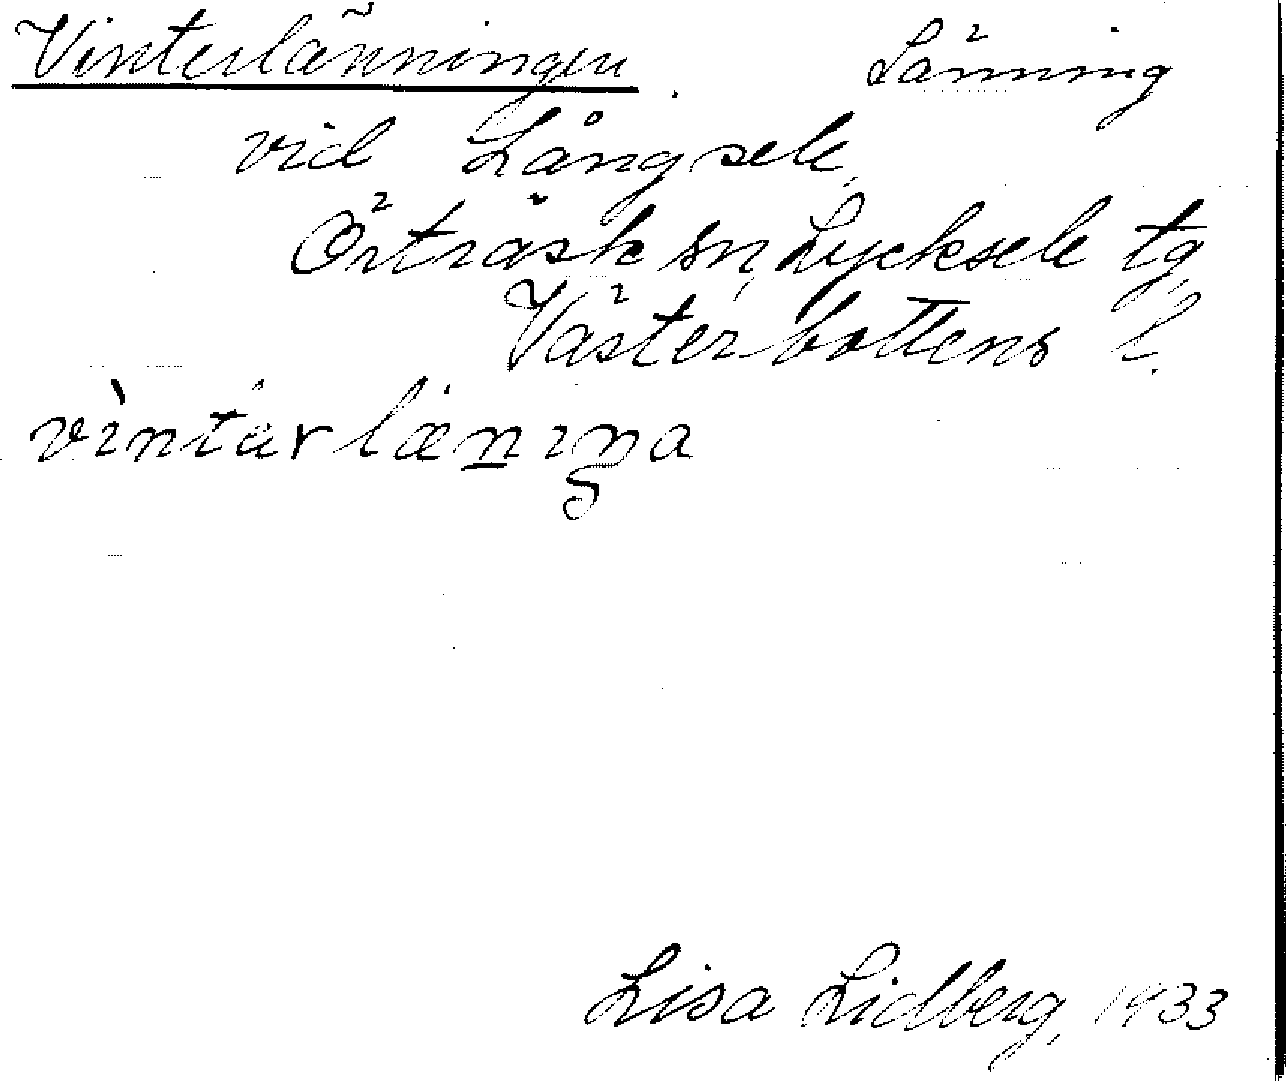 Vinterlänningen. Länning
vid Långsele,
Örträsk sn, Lycksele tg
Västerbottens l.
vìntərlæn̲ıŋa
Lisa Lidberg, 1933